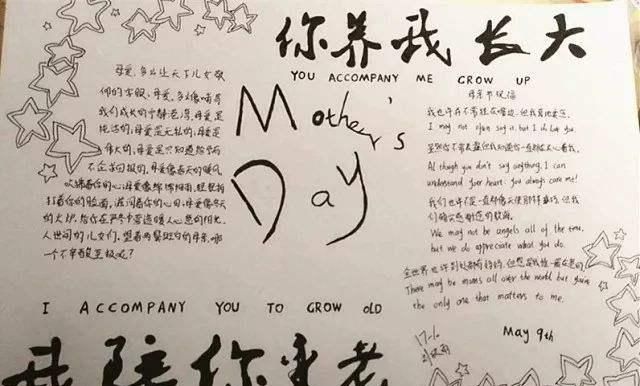 你养我长大
YOU ACCOMPANY ME GROW UP
Mother's
Day
母爱，多么让天下儿女敬
仰的字眼，母爱，多像哺育
我们成长的宁静港湾，母爱是
纯洁的，母爱是无私的，母爱是
伟大的，母爱是只知道给予而
不企求回报的，母爱像春天的暖风
吹拂着你的心；母爱像绵绵细雨，轻轻拍
打着你的脸面，滋润着你的心田；母爱像冬天
的火炉，给你在严冬中营造暖人心意的阳光。
人世间的儿女们，望着两鬓斑白的母亲，哪
一个不
母亲节祝福
我也许并不常挂在嘴边，但我真地爱您。
I may not often say it, but I do love you.
虽然你不常表露但我知道你一直都在关心着我。
Al though you don't say anything, I can
understand your heart: you always care me!
我们也许不是一直都像天使那样乖巧，但我
们确实感谢您的教诲。
We may not be angels all of the time,
but we do appreciate what you do.
全世界也许到处都有妈妈，但您是我唯一最在意的
There may be moms all over the world but you're
the only one that matters to me.
May 9th
I ACCOMPANY YOU TO GROW OLD
我陪你变老